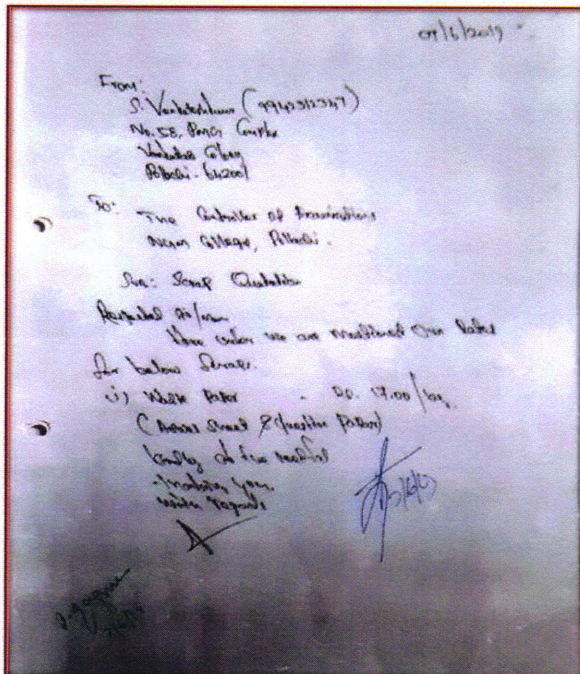 From:
S. Venkateshkumar (9942312347)
No. 58,
Venkatesa Colony
Pollachi - 642001
To: The Controller of Examinations
NGM College, Pollachi.
Sub: Scrap Quotation
Respected Sir/mam,
Here under we are mentioned Our Rates
for below Scraps.
i) White Paper - RS. 17.00/kg.
(Answer Sheet & Question Paper)
kindly do the needful
Thanking you,
With regards